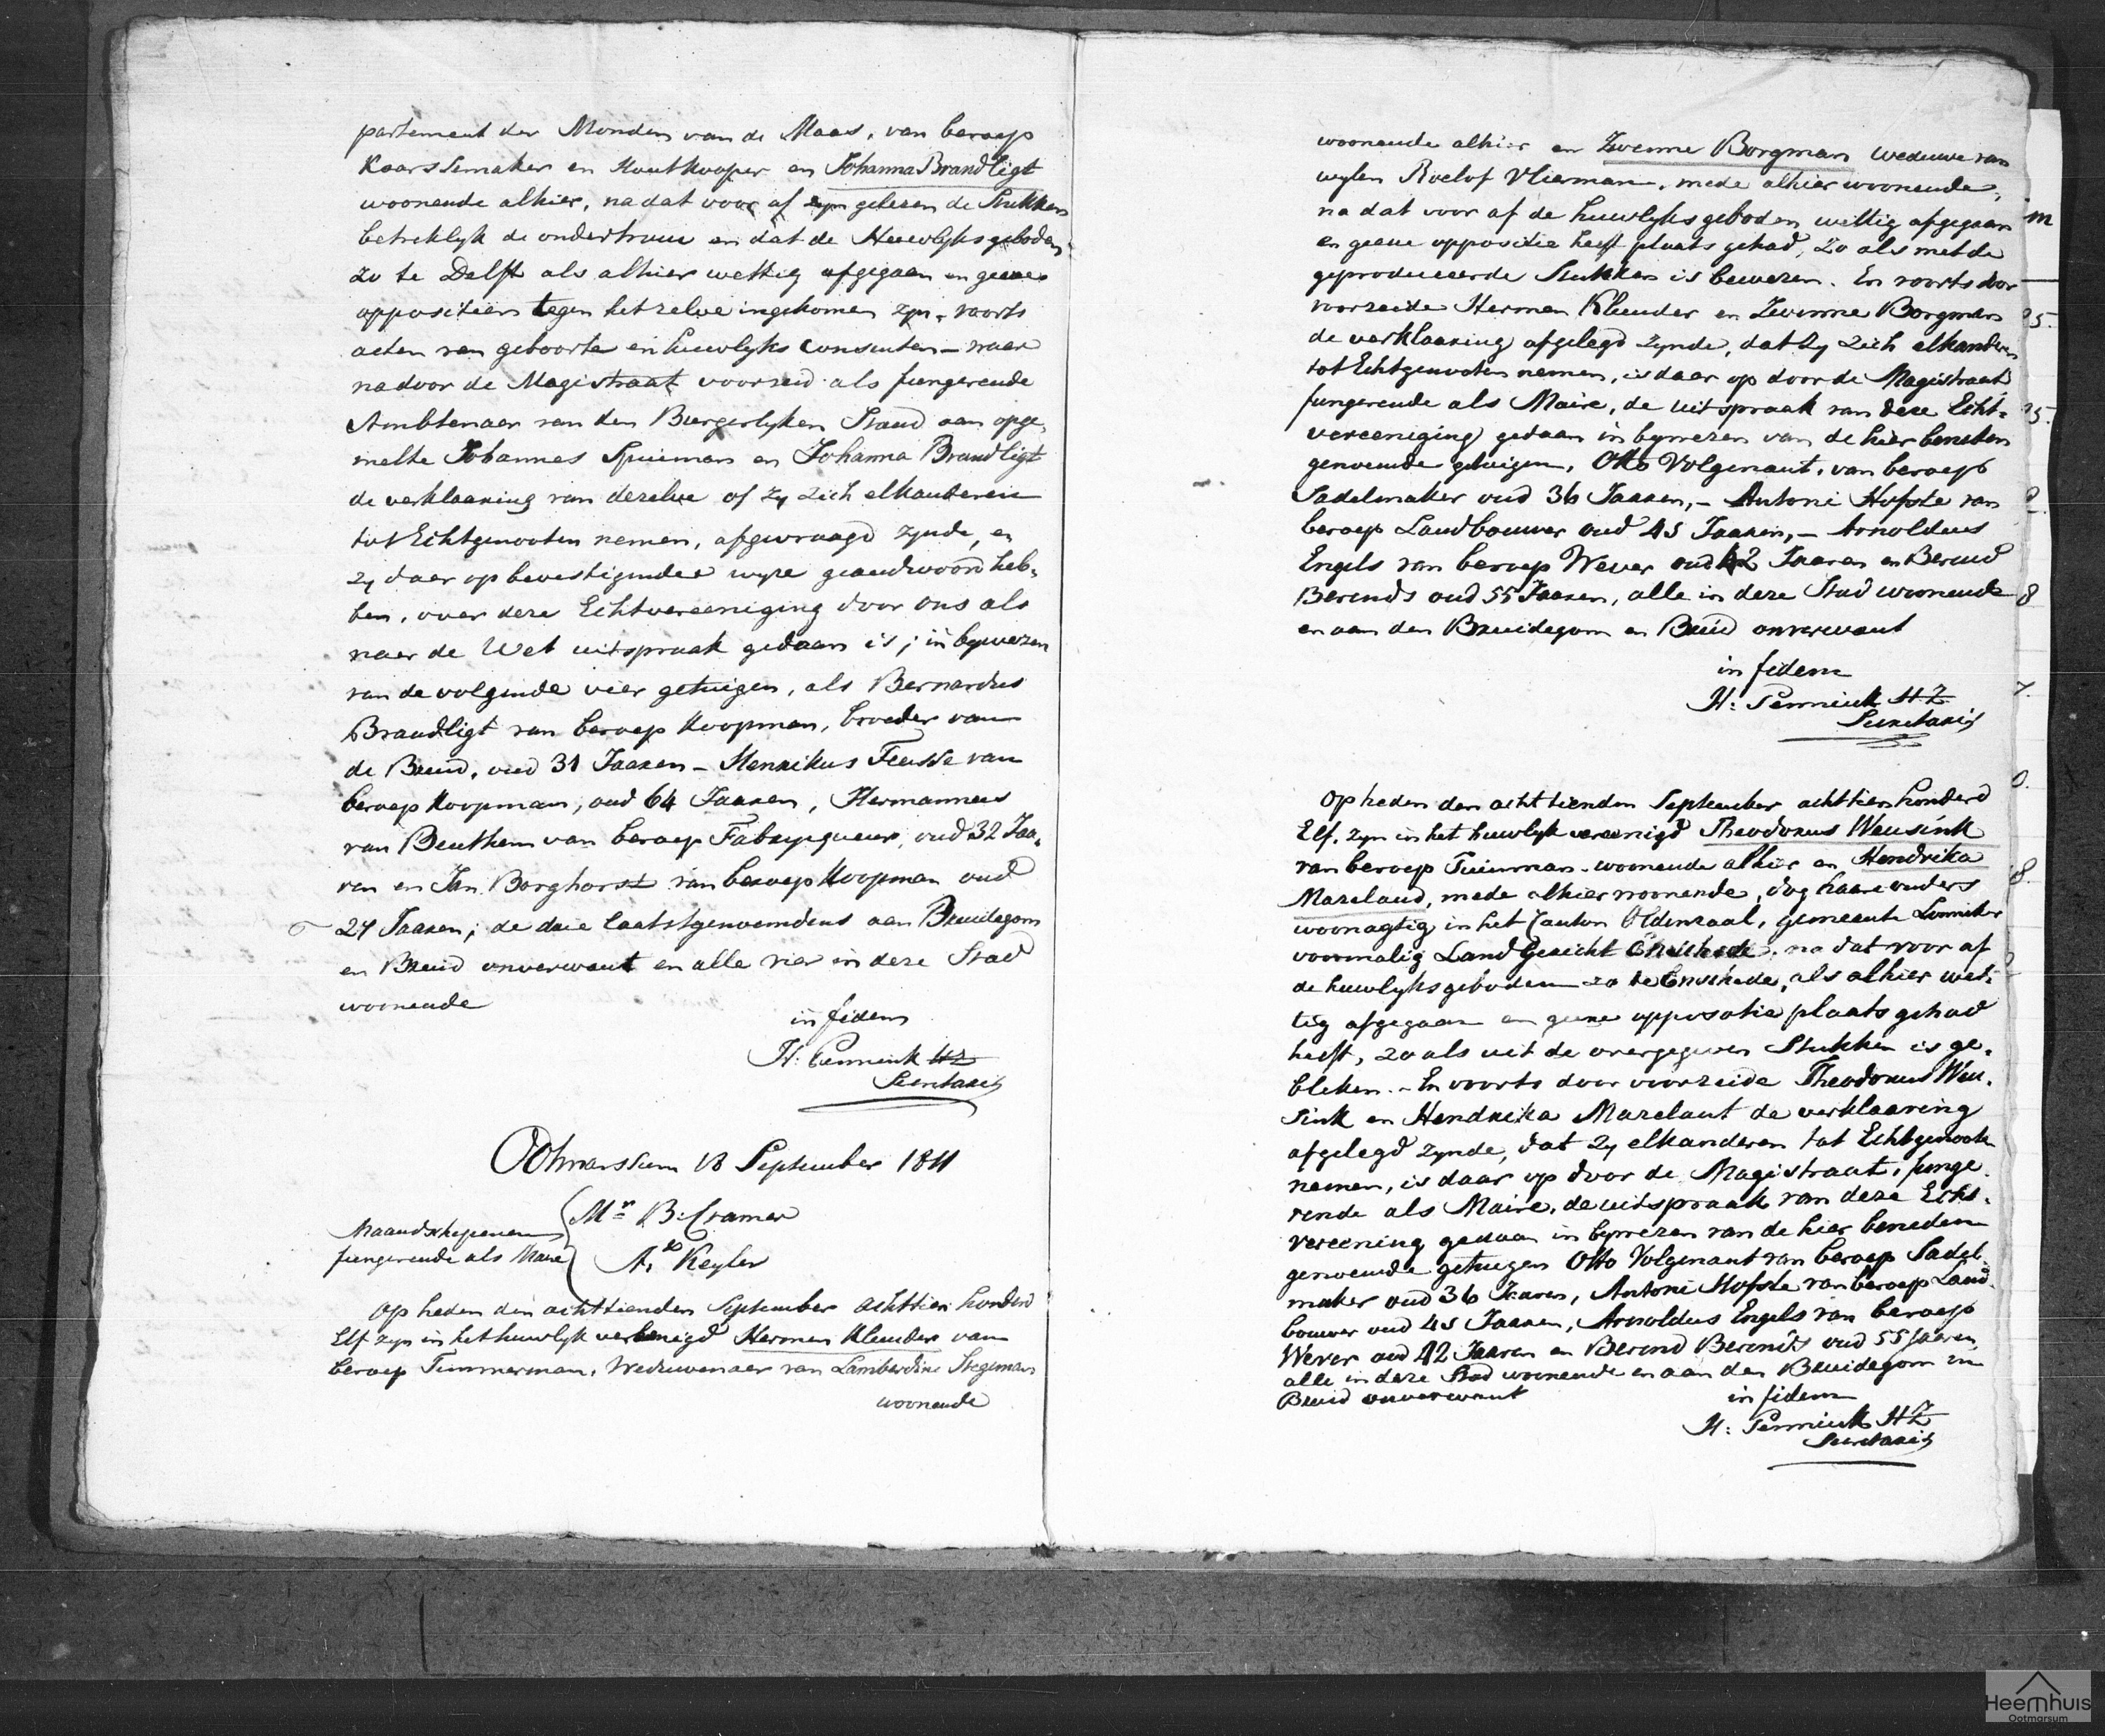 partement der Monden van de Maas, van beroep
Kaarssemaker en Houtkooper en Johanna Brandligt
woonende alhier, na dat voor af zyn gelezen de Stukken
betreklyk de ondertrouw en dat de Huwlyks geboden,
zo te Delft als alhier wettig afgegaan en geene
oppositien tegen het zelve ingekomen zyn, voorts
acten van geboorte en huwlyks consenten – waar
na door de Magistraat voorzeid als fungerende
Ambtenaar van den Burgerlyken Stand aan opge,
melte Johannes Spuiman en Johanna Brandligt
de verklaaring van dezelve of zy zich elkanderen
tot Echtgenooten nemen, afgevraagd zynde, en
zy daar op bevestigender wyze geandwoord heb,
ben, over deze Echtvereeniging door ons als
naar de Wet uitspraak gedaan is; in bywezen
van de volgende vier getuigen, als Bernardus
Brandligt van beroep Koopman, broeder van
de Bruid, oud 31 Jaaren – Henrikus Fensse van
beroep Koopman, oud 64 Jaaren, Hermannus
van Benthem van beroep Fabryqueur, oud 32 Jaa,
ren en Jan Borghorst van beroep Koopman oud
24 Jaaren; de drie laatstgenoemdens aan Bruidegom
en Bruid onverwant en alle vier in deze Stad
woonende
in fidem
H: Pennink HZ
Secretaris
Ootmarssum 18 September 1811
Mr B: Cramer
Maandschepenen
fungerende als Maire
As Keyler
Op heden den achttienden September achttien honderd
Elf zyn in het huwlyk vereenigd Hermen Kleunder van
beroep Timmerman, Weduwenaer van Lamberdine Stegeman
woonende
woonende alhier en Zwenne Borgman weduwe van
wylen Roelof Vlierman, mede alhier woonende,
na dat voor af de huwlyks geboden wettig afgegaan
en geene oppositie heeft plaats gehad, zo als met de
geproduceerde Stukken is bewezen. En voorts door
voorzeide Hermen Kleunder en Zwenne Borgman
de verklaaring afgelegd zynde, dat zy zich elkanderen
tot Echtgenooten nemen, is daar op door de Magistraat
fungerende als Maire, de uitspraak van deze Echt,
vereeniging gedaan in bywezen van de hier beneden
genoemde getuigen, Otto Volgenant, van beroep
Sadelmaker oud 36 Jaaren, – Antoni Hofste van
beroep Landbouwer oud 45 Jaaren, – Arnoldus
Engels van beroep Wever oud 42 Jaaren en Berend
Berends oud 55 Jaaren, alle in deze Stad woonende
en aan den Bruidegom en Bruid onverwant
in fidem
H: Pennink HZ
Secretaris
Op heden den achttienden September achttien honderd
Elf, zyn in het huwlyk vereenigd Theodorus Weusink
van beroep Tuinman woonende alhier en Hendrika
Mazeland, mede alhier woonende, dog haare ouders
woonagtig in het Canton Oldenzaal, gemeente Lonniker
voormalig Land Gericht Enschede, na dat voor af
de huwlyks geboden zo te Enschede, als alhier wet,
tig afgegaan en geene oppositie plaats gehad
heeft, zo als uit de overgegeven Stukken is ge,
bleken. – En voorts door voorzeide Theodorus Weu,
sink en Hendrika Mazelant de verklaaring
afgelegd zynde, dat zy elkanderen tot Echtgenooten
nemen, is daar op door de Magistraat, funge,
rende als Maire, de uitspraak van deze Echt,
vereening gedaan in bywezen van de hier beneden
genoemde getuigen Otto Volgenant van beroep Sadel,
maker oud 36 Jaaren, Antoni Hofste van beroep Land,
bouwer oud 45 Jaaren, Arnoldus Engels van beroep
Wever oud 42 Jaaren en Berend Berends oud 55 Jaaren
alle in deze Stad woonende en aan den Bruidegom en
Bruid onverwant
in fidem
H: Pennink HZ
Secretaris
Heemhuis
Ootmarsum